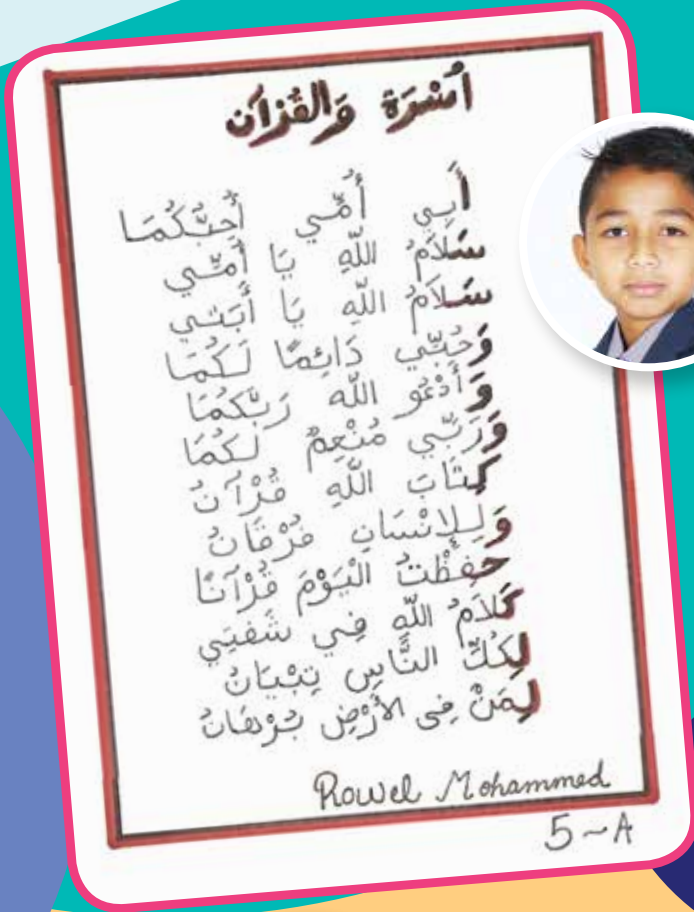 أُسْرَة وَالقُرْآن
أَبِي أُمِّي أُحِبُّكُمَا
سَلَامُ اللهِ يَا أُمِّي
سَلَامُ اللهِ يَا أَبَتِي
وَحُبِّي دَائِمًا لَكُمَا
وَأَدْعُو اللهَ رَبَّكُمَا
وَرَبِّي مُنْعِمٌ لَكُمَا
كِتَابَ اللهِ قُرْآنُ
وَلِلِانْسَانِ فُرْقَانُ
حَفِظْتُ الْيَوْمَ قُرْآنًا
كَلَامُ اللهِ فِي شَفَتِي
لِكُلِّ النَّاسِ تِبْيَانُ
لِمَنْ فِى الأَرْضِ بُرْهَانُ
Rowel Mohammed
5~A